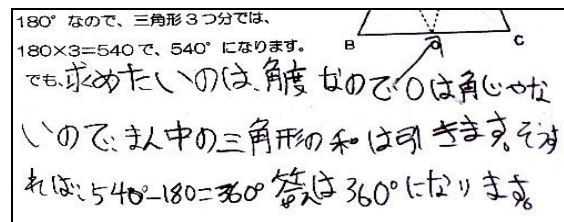 180°なので、三角形3つ分では、
180×3=540で、540°になります。
B
C
でも、求めたいのは、角度なので〇は角じゃな
いので、まん中の三角形の和は引きます。そうす
れば、540°-180=360° 答えは360°になります。